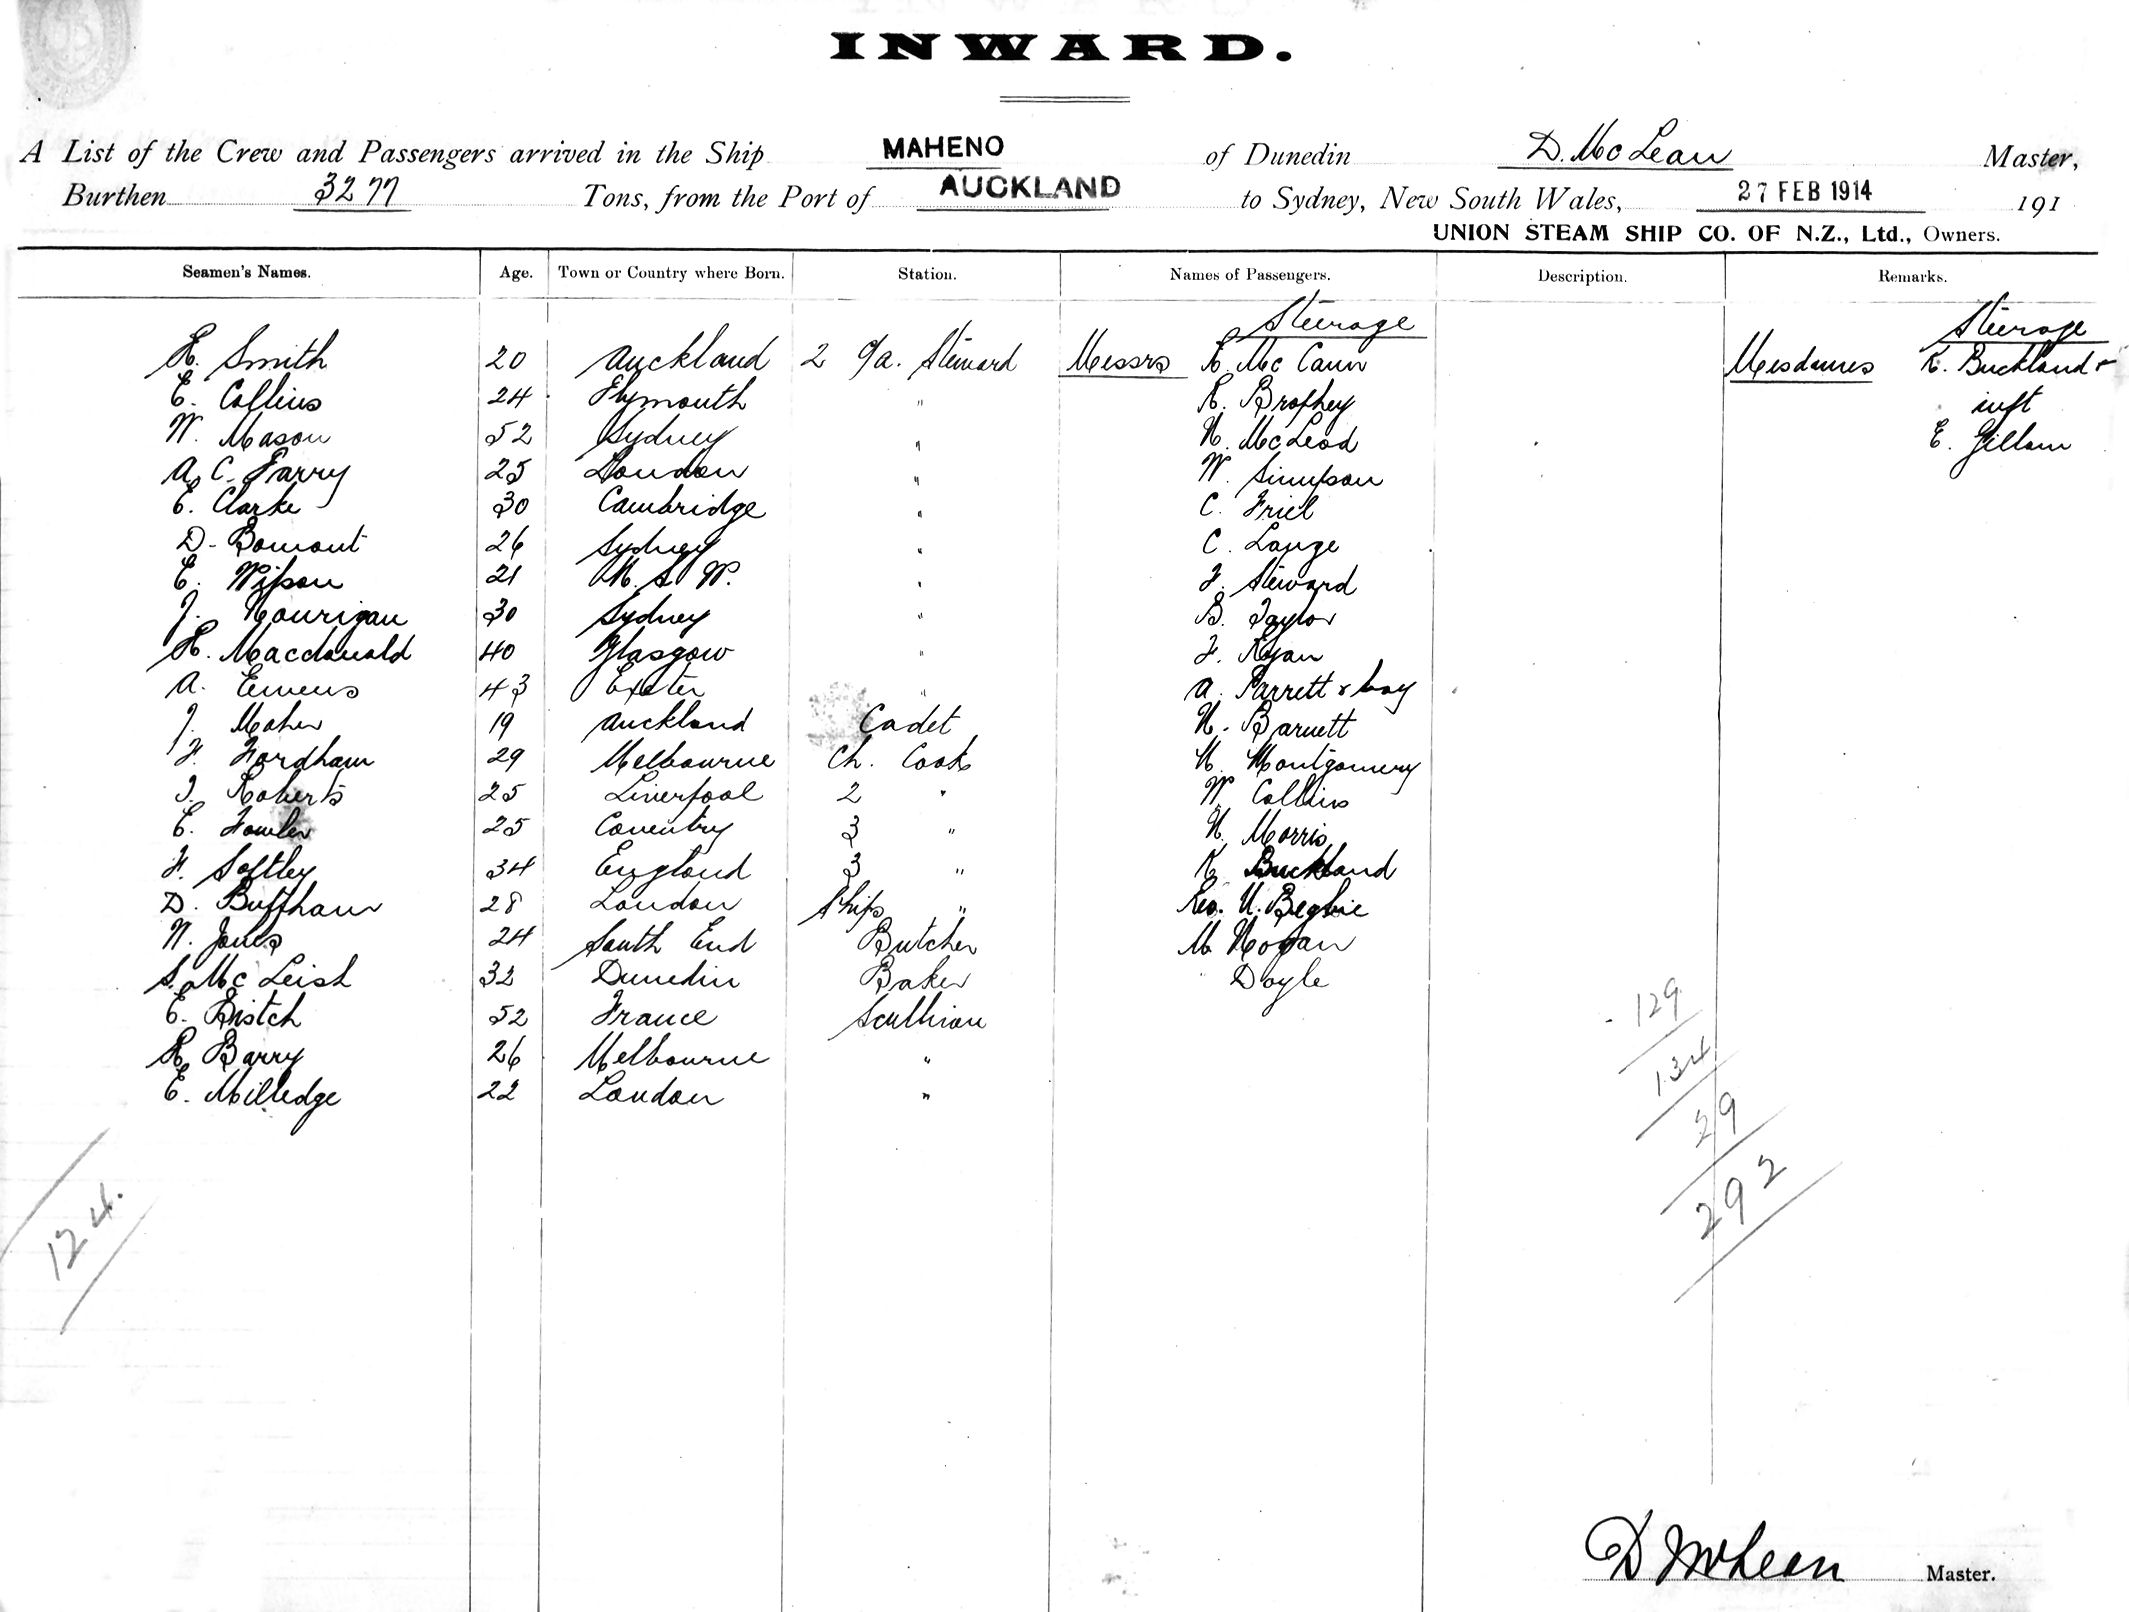 INWARD.
A List of the Crew and Passengers arrived in the Ship MAHENO of Dunedin D. McLean Master,
Burthen 3277 Tons, from the Port of AUCKLAND to Sydney, New South Wales, 27 FEB 1914 191
UNION STEAM SHIP CO. OF N.Z., Ltd., Owners.
Seamen's Names. Age. Town or Country where Born. Station. Names of Passengers. Description. Remarks.
Steerage Steerage
H. Smith 20 Auckland 2 c/a. Steward Messrs H. Mc Cann Mesdames K. Buckland &
E. Collins 24 Plymouth " R. Brophey inft
W. Mason 52 Sydney " N. McLeod E. Gillam
A. C. Parry 25 London " W. Simpson
E. Clarke 30 Cambridge " C. Friel
D. Bomont 26 Sydney " C. Lange
E. 21 N. S. W. " F. Steward
J. Hourigan 30 Sydney " B. Taylor
H. Macdonald 40 Glasgow " F. Ryan
A. Emens 43 Exeter " A. Parrett & boy
J. Maher 19 Auckland Cadet H. Barnett
F. Fordham 29 Melbourne Ch. Cook H. Montgomery
J. Roberts 25 Liverpool 2 " W. Collins
E. Fowler 25 Coventry 3 " H. Morris
F. Softley 34 England 3 " K. Buckland
D. Buffham 28 London Ships " Rev. H. Begbie
W. Jones 24 South End Butcher M. Hogan
S. Mc Leish 32 Dunedin Baker Doyle
E. Bistch 52 France Scullion
H. Barry 26 Melbourne "
E. Milledge 22 London "
129
134
29
292
124.
D McLean Master.